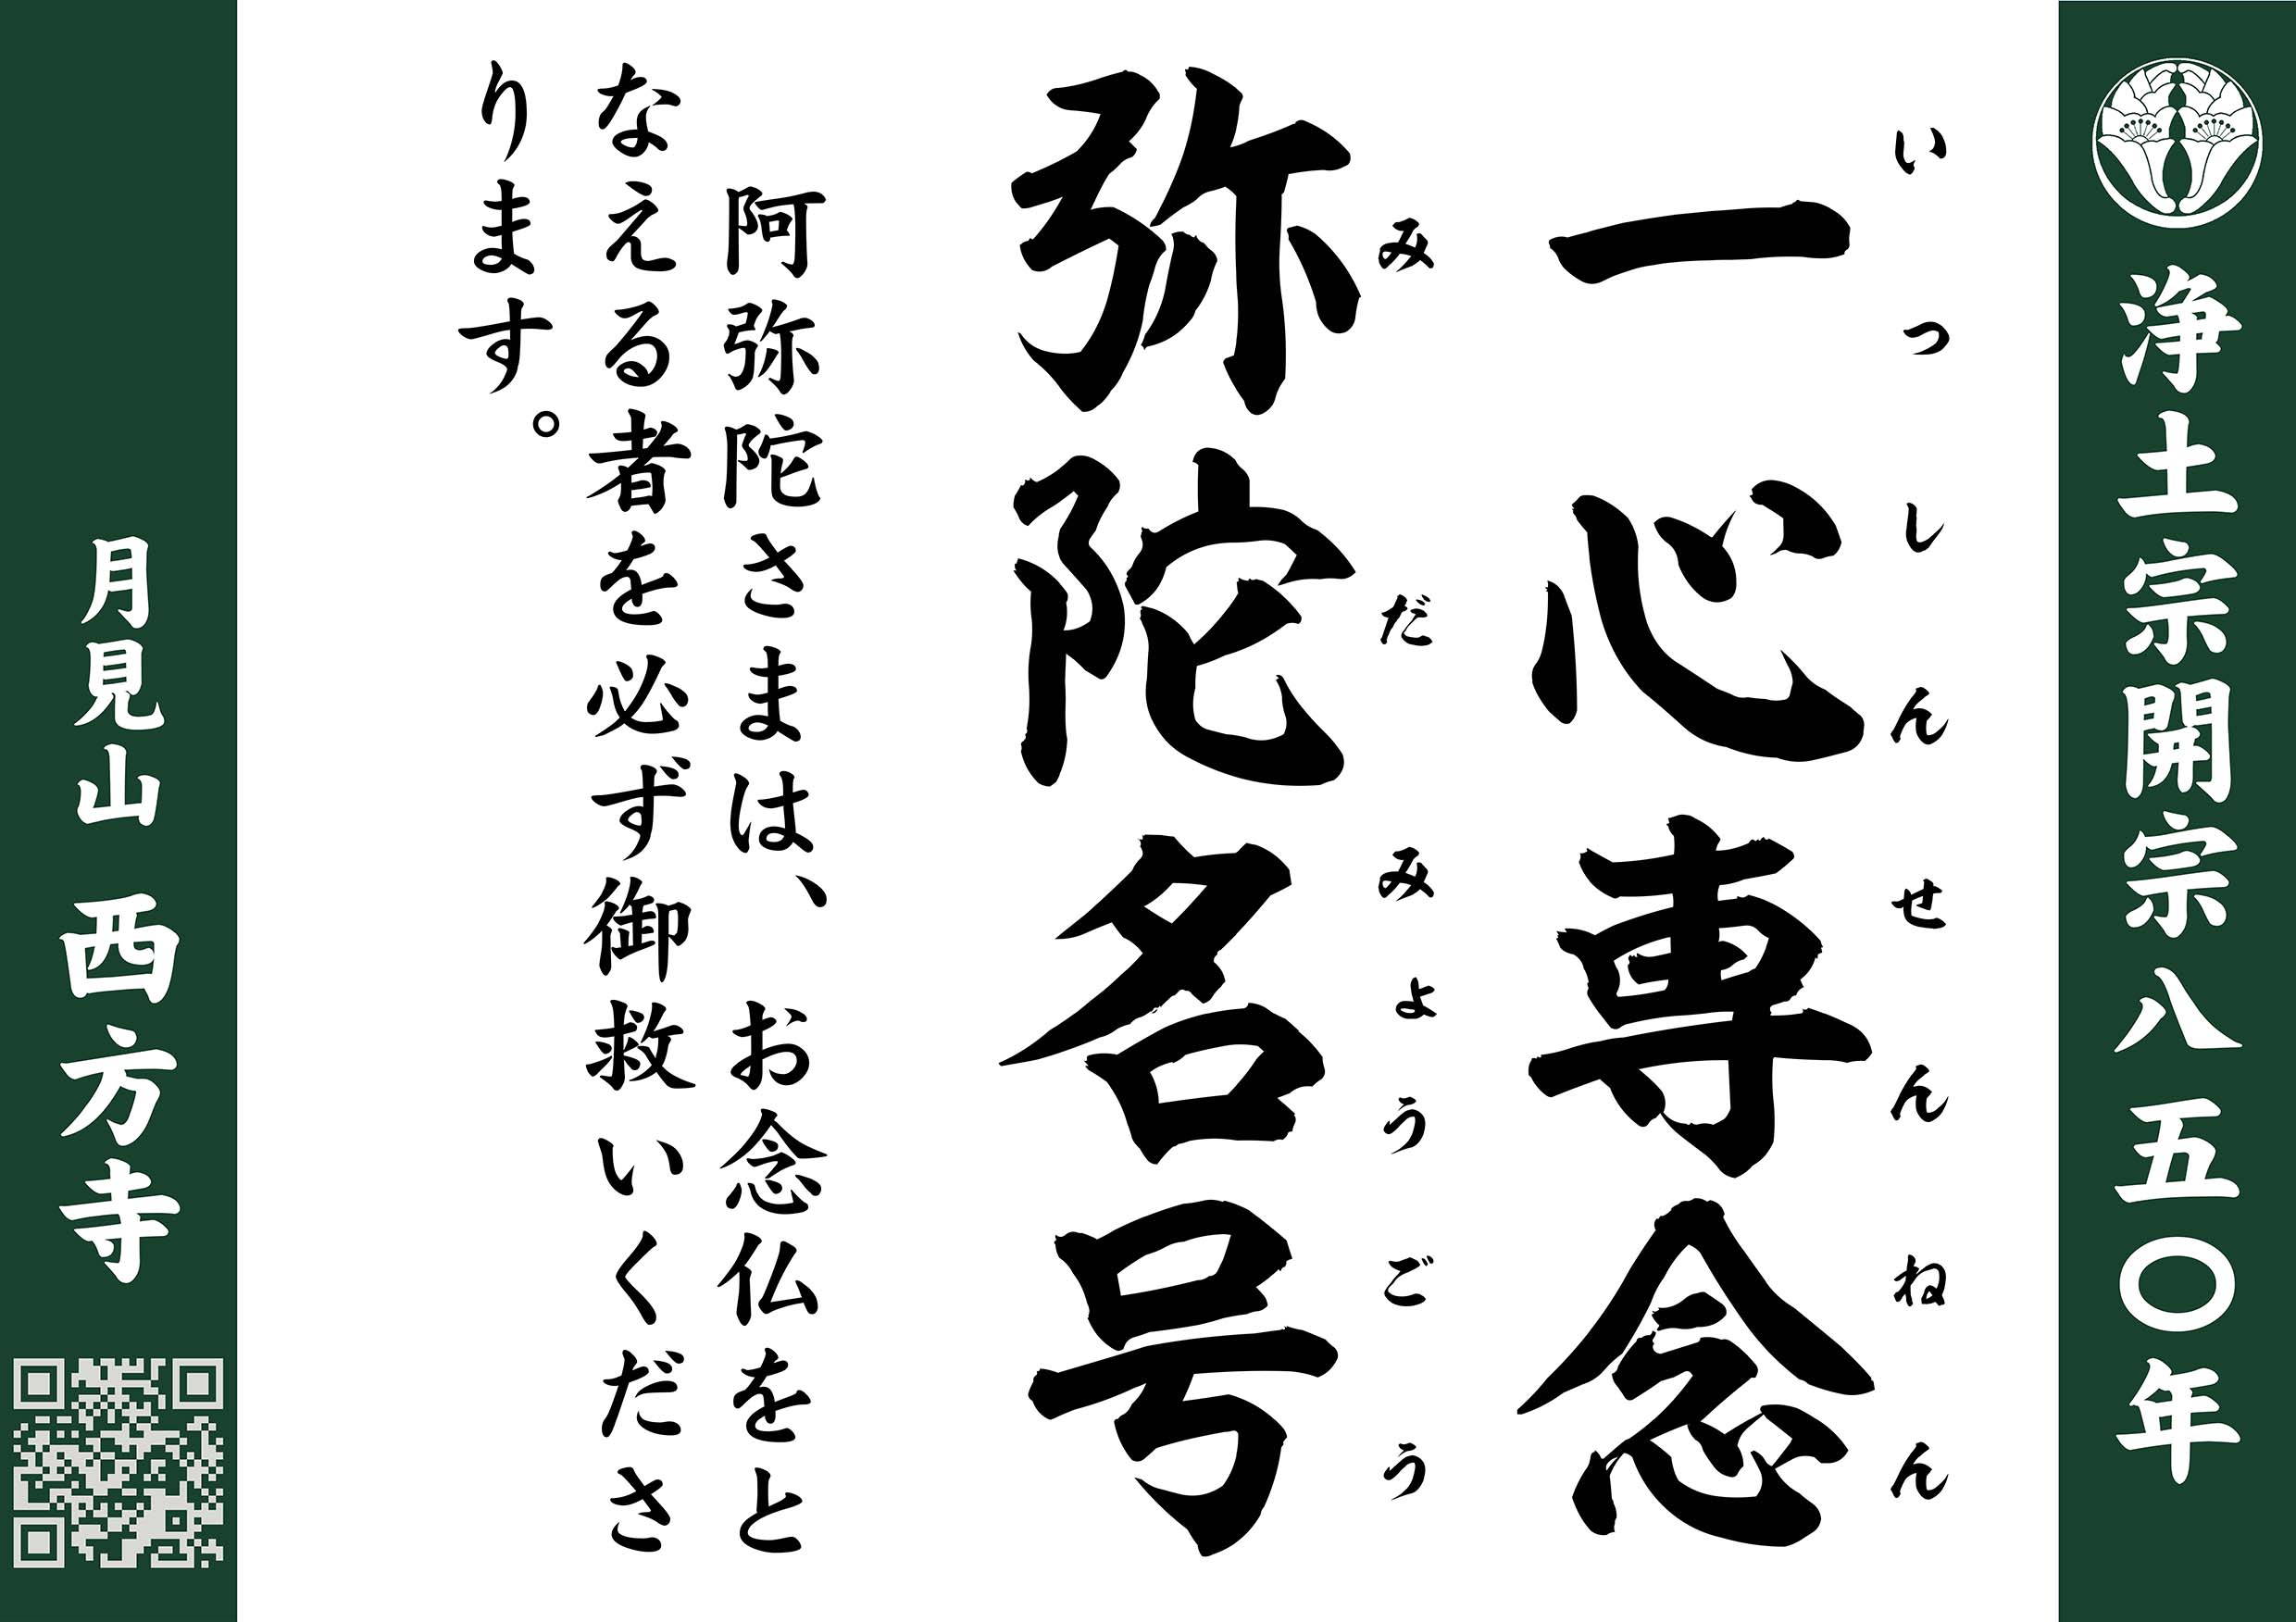 浄土宗開宗八五〇年
いっしんせんねん
一心専念
みだみょうごう
弥陀名号
阿弥陀さまは、お念仏をと
なえる者を必ず御救いくださ
ります。
月見山 西方寺